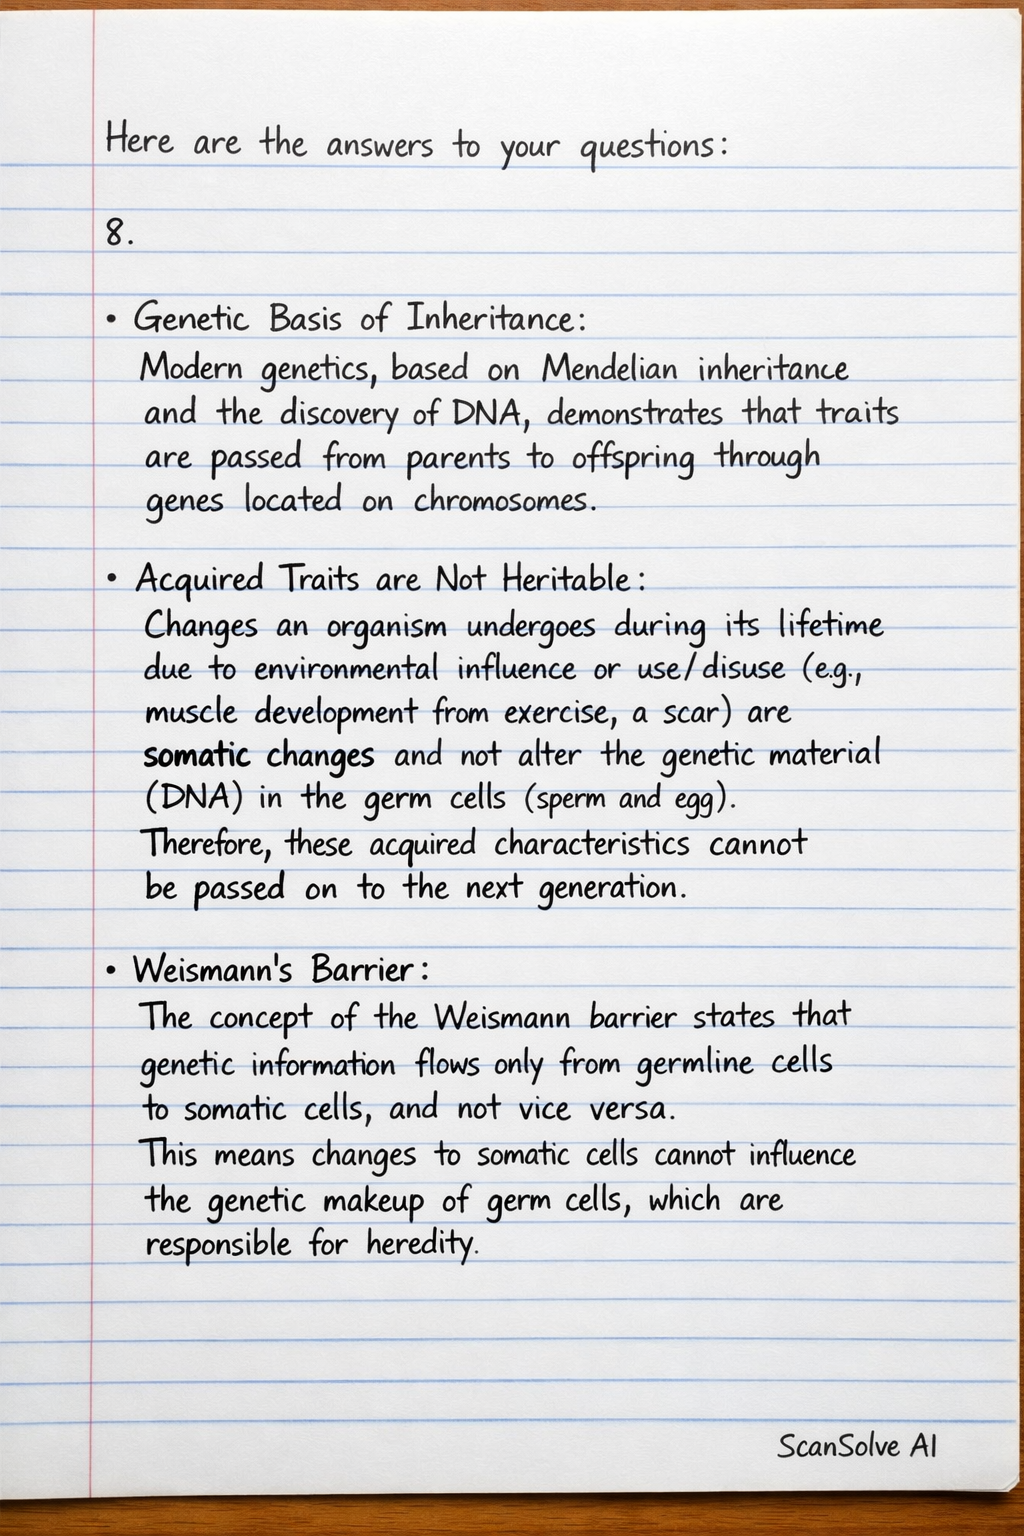 Here are the answers to your questions:
8.
• Genetic Basis of Inheritance:
Modern genetics, based on Mendelian inheritance
and the discovery of DNA, demonstrates that traits
are passed from parents to offspring through
genes located on chromosomes.
• Acquired Traits are Not Heritable:
Changes an organism undergoes during its lifetime
due to environmental influence or use/disuse (e.g.,
muscle development from exercise, a scar) are
somatic changes and not alter the genetic material
(DNA) in the germ cells (sperm and egg).
Therefore, these acquired characteristics cannot
be passed on to the next generation.
• Weismann's Barrier:
The concept of the Weismann barrier states that
genetic information flows only from germline cells
to somatic cells, and not vice versa.
This means changes to somatic cells cannot influence
the genetic makeup of germ cells, which are
responsible for heredity.
ScanSolve AI